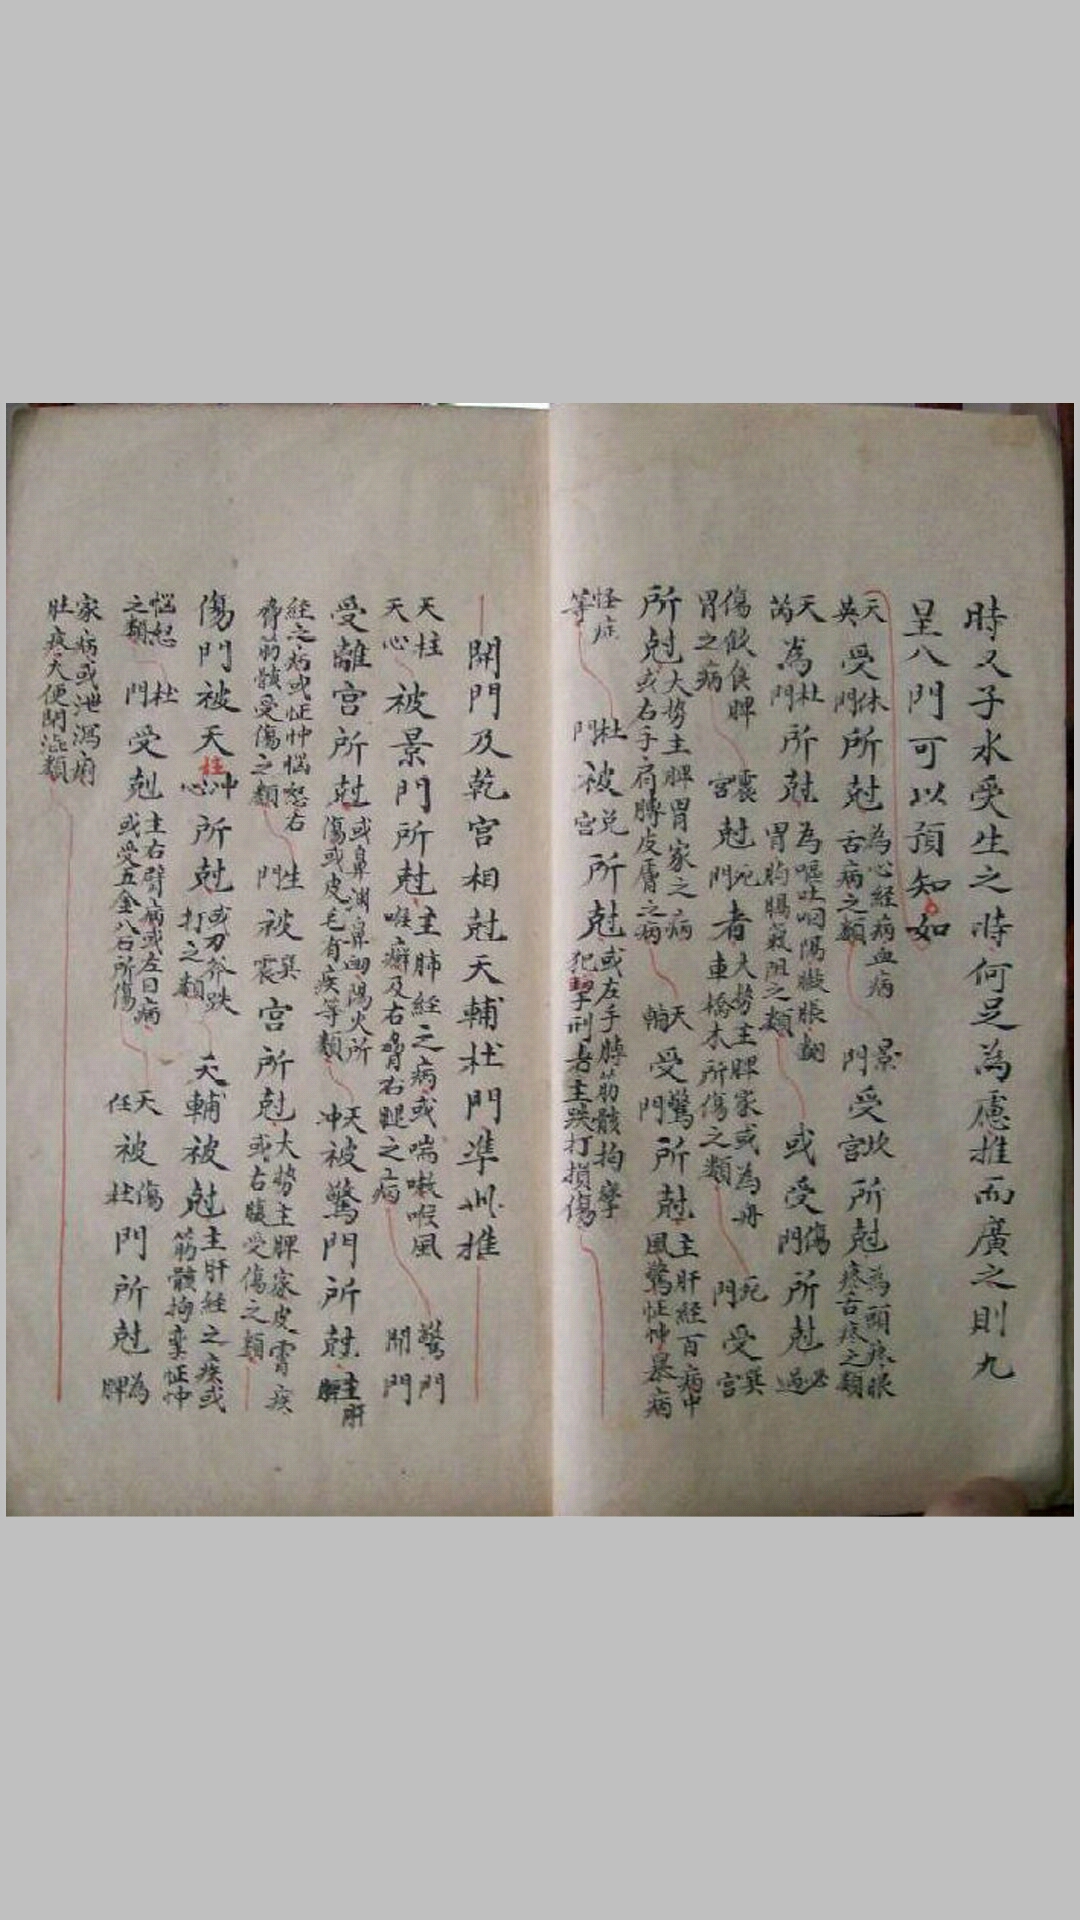 時又子水受生之時何足為慮推而廣之則九
呈八門可以預知如
天英受休門所尅為心經病血病舌病之類景門受坎宮所尅為頭疼眼疼舌疼之類
天芮為杜門所尅為嘔吐咽隔臌脹翻胃胸膈氣阻之類或受傷門所尅必過
傷飲食脾胃之病震宮尅死門者大勢主脾家或為舟車橋木所傷之類死門受巽宮
所尅大勢主脾胃家之病或右手肩膊皮膚之病天輔受驚門所尅主肝經百病中風驚怔忡暴病
怪症等杜門被兌宮所尅或左手膊筋骸拘孿犯擊刑者主跌打損傷
開門及乾宮相尅天輔杜門準此推
天柱天心被景門所尅主肺經之病或喘嗽喉風喉癬及右脅右腿之病驚門開門
受離宮所尅或鼻淵鼻衄陽火所傷或皮毛有疾等類天冲被驚門所尅主肝
經之病或怔忡惱怒右脊筋骸受傷之類生門被巽震宮所尅大勢主脾家皮膏疾或右腿受傷之類
傷門被天柱心所尅或刀斧跌打之類天輔被尅主肝經之疾或筋骸拘孿怔忡
惱怒之類杜門受尅主右臂病或左目病或受五金八石所傷天任被傷杜門所尅為脾
家病或泄瀉痢肚疼大便閉澁類